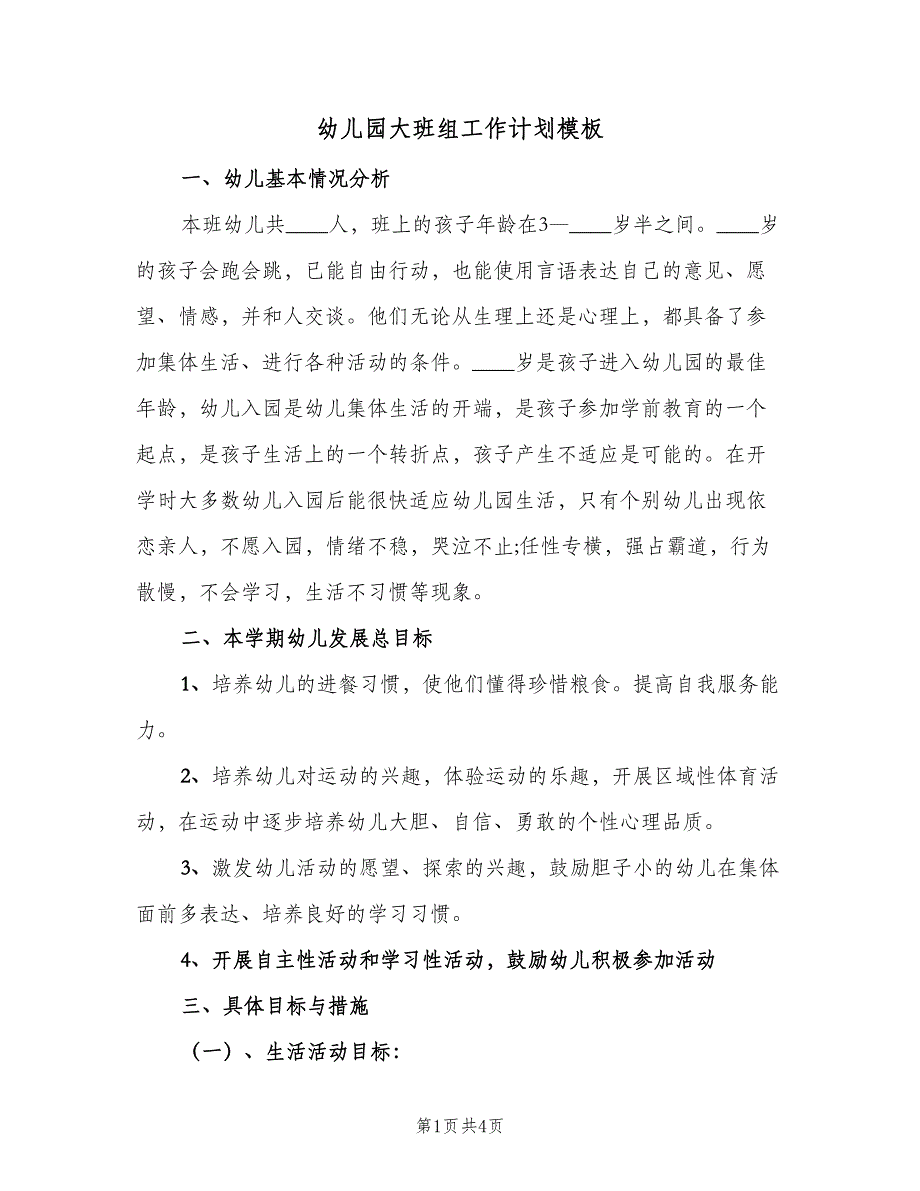 幼儿园大班组工作计划模板
一、幼儿基本情况分析
本班幼儿共____人，班上的孩子年龄在3—____岁半之间。____岁
的孩子会跑会跳，已能自由行动，也能使用言语表达自己的意见、愿
望、情感，并和人交谈。他们无论从生理上还是心理上，都具备了参
加集体生活、进行各种活动的条件。____岁是孩子进入幼儿园的最佳
年龄，幼儿入园是幼儿集体生活的开端，是孩子参加学前教育的一个
起点，是孩子生活上的一个转折点，孩子产生不适应是可能的。在开
学时大多数幼儿入园后能很快适应幼儿园生活，只有个别幼儿出现依
恋亲人，不愿入园，情绪不稳，哭泣不止;任性专横，强占霸道，行为
散慢，不会学习，生活不习惯等现象。
二、本学期幼儿发展总目标
1、培养幼儿的进餐习惯，使他们懂得珍惜粮食。提高自我服务能
力。
2、培养幼儿对运动的兴趣，体验运动的乐趣，开展区域性体育活
动，在运动中逐步培养幼儿大胆、自信、勇敢的个性心理品质。
3、激发幼儿活动的愿望、探索的兴趣，鼓励胆子小的幼儿在集体
面前多表达、培养良好的学习习惯。
4、开展自主性活动和学习性活动，鼓励幼儿积极参加活动
三、具体目标与措施
（一）、生活活动目标：
第1页共4页